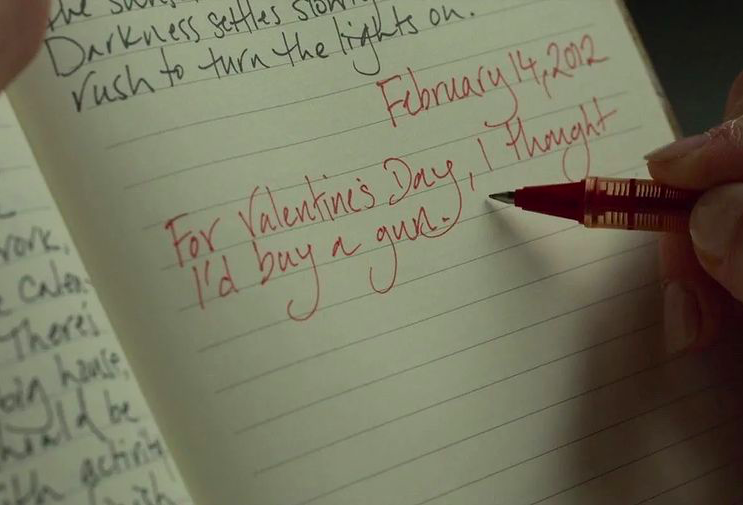 the
Darkness settles slowly
rush to turn the lights on.
February 14, 2012
For Valentine's Day, I Thought
I'd buy a gun.
work,
There's
big house,
should be
with activity
with